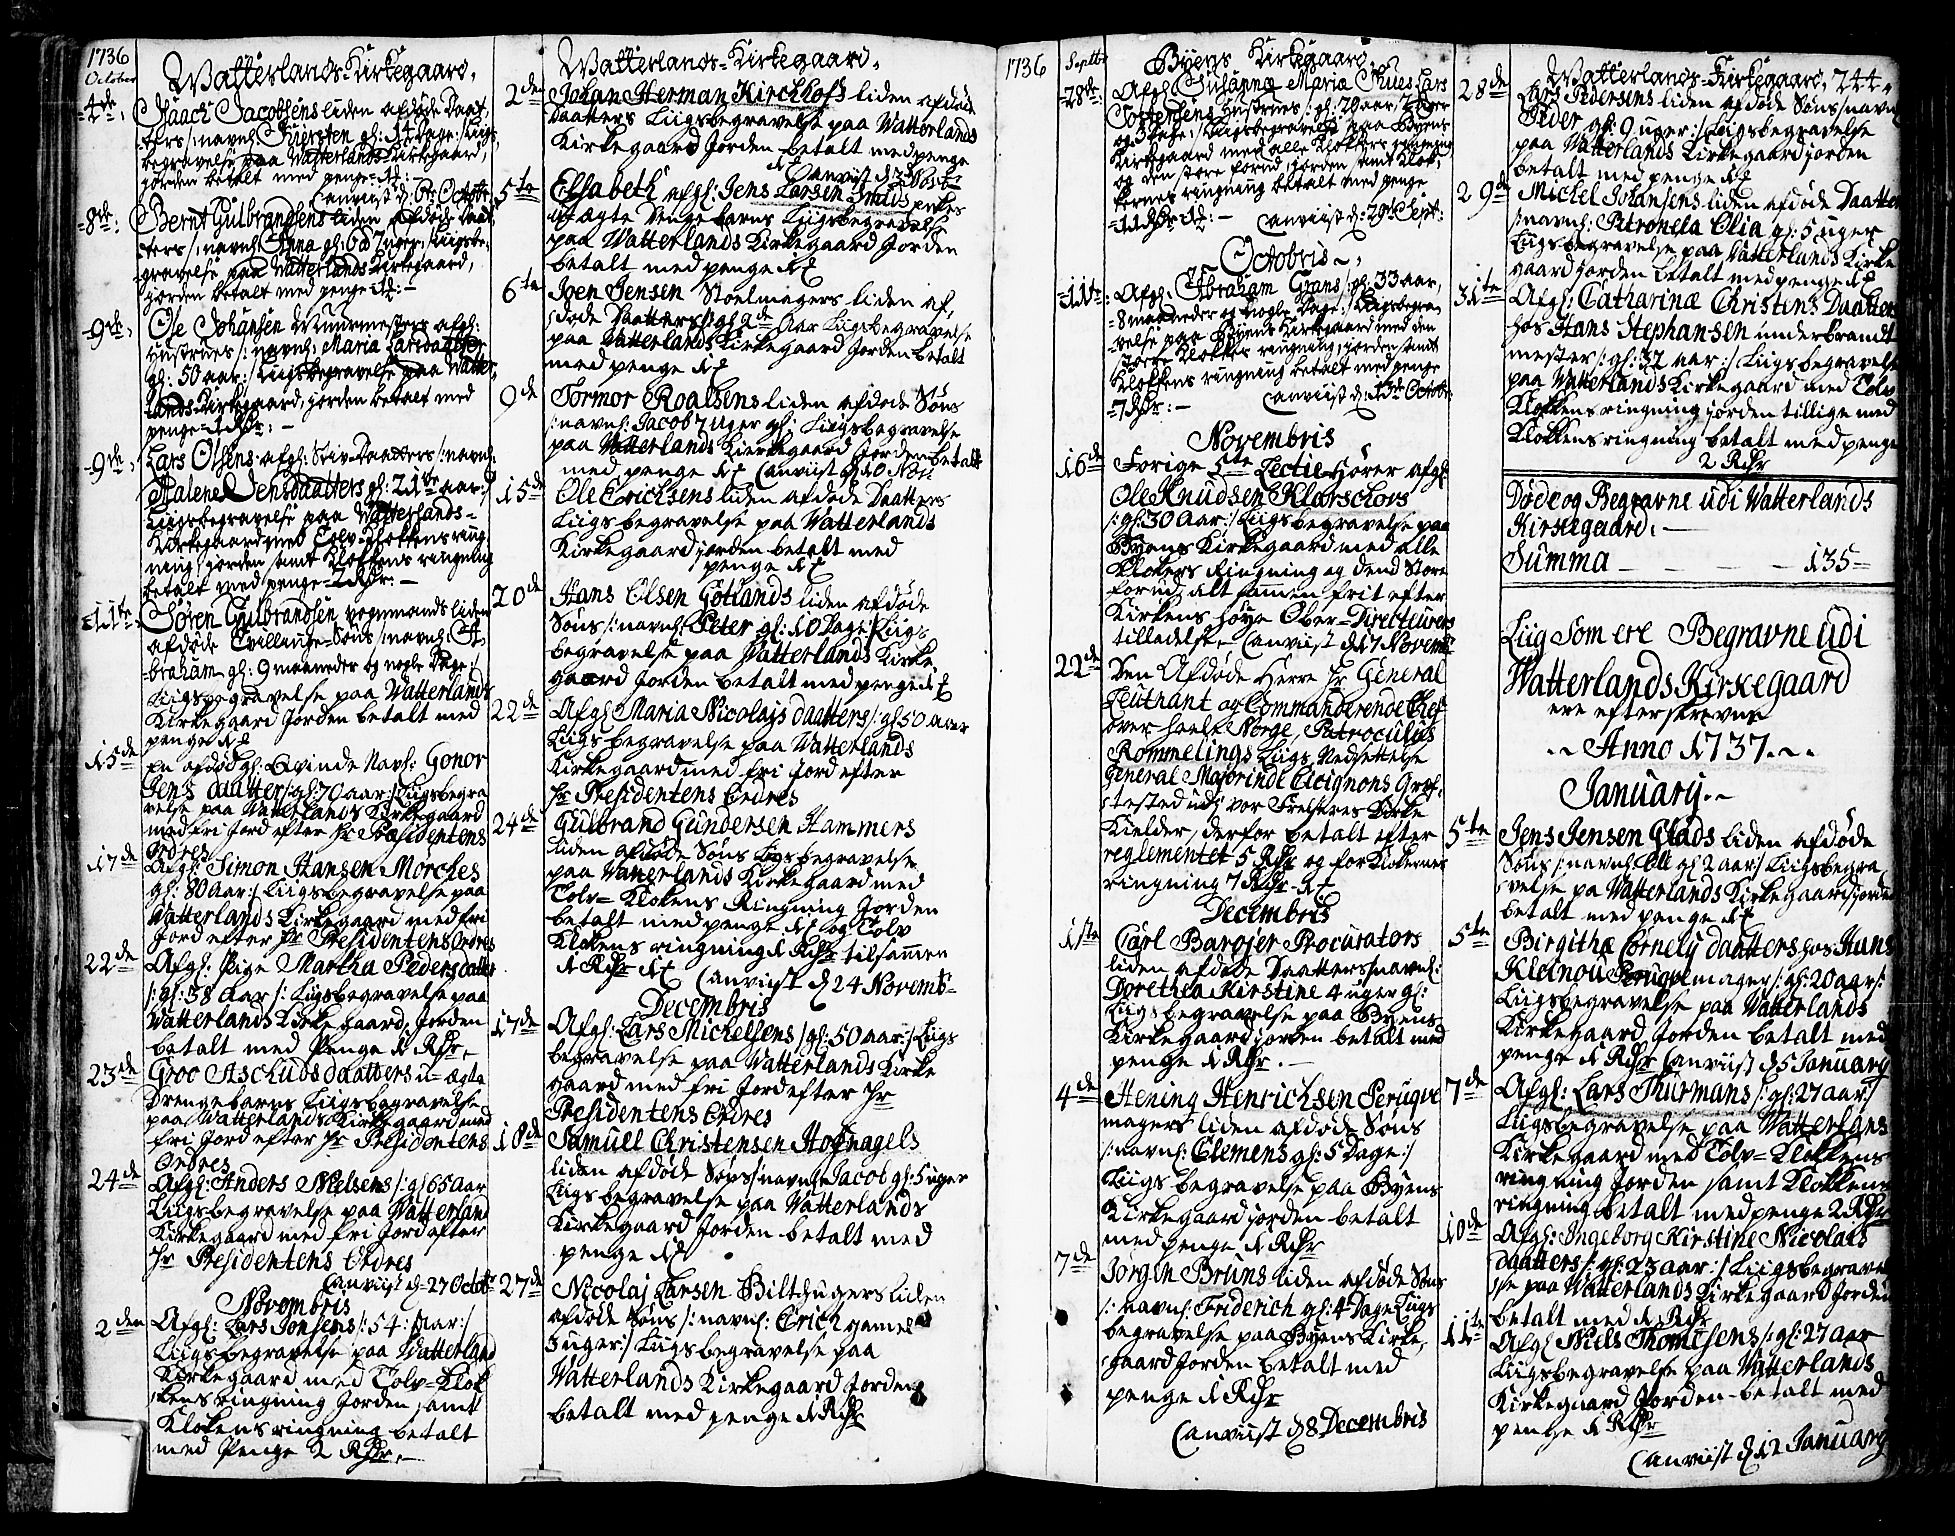 1736
October
Watterlands=Kirkegaard,
4de
Isaach Jacobsens liden afdøde Daat=
ters /: navnl: Kiersten gl: 14 dage :/ Liigs
begravelse paa Watterlands Kirkegaard,
jorden betalt med penge
Canviist d: 6te Octobr
8de
Bernt Gulbrandsens liden afdøde Daat
ters /: navnl: Anna gl: 6 à 7 uger :/ Liigsbe=
gravelse paa Watterlands Kirkegaard,
jorden betalt med penge
9de
Ole Johansen Muurmesters afgl:
Hustrues /: navnl: Maria Larsdaatter
gl: 50 aar :/ Liigsbegravelse paa Watter
lands Kirkegaard, jorden betalt med
penge
9de
Lars Olsens afgl: Stiv Daatters /: navnl:
Malene Jensdaatters gl: 21 aar :/
Liigsbegravelse paa Watterlands=
Kirkegaard med Tolv Klokkens ring
ning, jorden samt Klokkens ringning
betalt med penge 2 Rdr: —
11te
Søren Gulbrandsen vognmands liden
afdøde Tvillinge=Søns /: navnl: A=
braham gl: 9 maaneder og nogle Dage :/
Liigsbegravelse paa Watterlands
Kirkegaard Jorden betalt med
penge
15de
En afdød gl: Qvinde Navnl: Gonor
Jens daatter /: gl: 70 aar :/ Liigsbegra
velse paa Watterlands Kirkegaard
med fri Jord efter Hr Præsidentens
Ordres
17de
Afgl: Simon Hansen Morches
gl: 80 aar :/ Liigsbegravelse paa
Watterlands Kirkegaard med fri
Jord efter Hr Presidentens Ordres
22de
Afgl: Pige Martha Pedersdatter
/: gl: 58 Aar :/ Liigsbegravelse paa
Watterlands Kirkegaard, Jorden
betalt med Penge 1 Rdr,
23de
Groe Aschuds daatters u=ægte
Drengebarns Liigsbegravelse
paa Watterlands Kirkegaard med
fri Jord efter Hr Presidentens
Ordres
24de
Afgl: Anders Nielsens /: gl 65 Aar
Liigsbegravelse paa Watterland
Kirkegaard med fri Jord efter
Hr Presidentens Ordres
Canviist d: 27 Octobr
Novembris
2den
Afgl: Lars Jonsens /: 54: Aar :/
Liigsbegravelse paa Watterland
Kirkegaard med Tolv=Klok
kens ringning Jorden samt
Klokens ringning betalt
med Penge 2 Rdr, —
Watterlands=Kirkegaard,
2de
Johan Herman Kirchhofs liden afdøde
Daatters Liigsbegravelse paa Watterlands
Kirkegaard Jorden betalt med penge
Canviist d: 3 Novbr
5te
Elsabeth afgl: Jens Larsen Smids enkes
uægte Drengebarns Liigsbegravelse
paa Watterlands Kirkegaard Jorden
betalt med penge
6te
Joen Jensen Stoelmagers liden af,
døde Daatters /: gl: Aar Liigsbegravelse
paa Watterlands Kirkegaard Jorden betalt
med penge
9de
Tormor Roalsens liden afdøde Søns
/: navnl: Jacob 7 uger gl: Liigsbegravelse
paa Watterlands Kirkegaard Jorden betalt
med penge Canviist d: 10 Nov:
15de
Ole Erichsens liden afdøde Daatters
Liigsbegravelse paa Watterlands
Kirkegaard jorden betalt med
penge
20de
Hans Olsen Gotlands liden afdøde
Søns /: navnl: Peter gl: 10 Dage Liigs
begravelse paa Watterlands Kirke
gaard Jorden betalt med penge
22de
Afgl: Maria Nicolajs daatters /: gl 50 aar
Liigsbegravelse paa Watterlands
Kirkegaard med fri Jord efter
Hr Presidentens Ordres
24de
Gulbrand Gundersen Hammers
liden afdøde Søns Liigsbegravelse
paa Watterlands Kirkegaard med
Tolv=Klokens Ringning Jorden
betalt med penge og Tolv
Klokens ringning 1 Rdr tilsamen
Canviist d 24 Novemb=
Decembris
17de
Afgl: Lars Michelsens /: gl: 50 aar :/ Liigs
begravelse paa Watterlands Kirke
gaard med fri Jord efter Hr
Presidentens Ordres
18de
Samuel Christensen Hofnagels
liden afdøde Søns /: navnl: Jacob gl: 5 uger
Liigsbegravelse paa Watterlands
Kirkegaard Jorden betalt med
penge
27de
Nicolaj Larsen Bilthugers liden
afdøde Søns /: navnl: Erich gamel
3 uger :/ Liigsbegravelse paa
Watterlands Kirkegaard Jorden
betalt med penge 1 Rdr
1736
Septbr
Byens Kirkegaard
28de
Afgl: Susanna Maria Lars
Torstensens Hustrues /: gl: 29 aar,
Liigsbegravelse paa Byens
Kirkegaard med alle Klokkers ringning
og den store forud jorden samt Klok=
kernes ringning betalt med penge
11 Rdr Canviist d: 29de Sept:
Octobris
11te
Afgl: Abraham Grans /: gl: 33 aar,
8 maaneder og nogle Dage :/ Liigsbegra=
velse paa Byens Kirkegaard med den
Store Klokkes ringning, jorden samt
Klokkens ringning betalt med penge
7 Rdr: — Canviist d: 13de Octobr:
Novembris
16de
Forige 5te Lectie Hører afgl:
Ole Knudsen Klorschovs
/: gl: 30 Aar :/ Liigsbegravelse paa
Byens Kirkegaard med alle
Klokers Ringning og dend Store
forud, alt samen frit efter
Kirkens høye Ober=Directeurers
tilladelse, Canviist d 17 Novemb
22de
Den Afdøde Herre Hr General
Leutnant og Commanderende Chef
over heele Norge, Patroculus
Rommelings Liigs Nedsettelse
General Majorinde Cicignons Graf,
sted udj vor Frelseres Kirke
Kielder, derfor betalt efter
reglementet 5 Rdr og for Klokernes
ringning 7 Rdr
Decembris
1ste
Carl Barojer Procurators
liden afdøde Daatters /: navnl:
Dorethea Kirstine 4 uger gl:
Liigsbegravelse paa Byens
Kirkegaard jorden betalt med
penge 1 Rdr. —
4de
Hening Henrichsen Peruqve
magers liden afdøde Søns
/: navnl: Clemens gl: 5 Dage :/
Liigsbegravelse paa Byens
Kirkegaard jorden betalt
med penge 1 Rdr
7de
Jørgen Bruns liden afdøde Søns
/: navnl: Friderich gl: 4 Dage Liigs
begravelse paa Byens Kirke,
gaard Jorden betalt med
penge 1 Rdr
Canviist d 8 Decembris
Watterlands=Kirkegaard, 244.
28de
Lars Pedersens liden afdøde Søns /: navnl
Peder gl: 9 uger :/ Liigsbegravelse
paa Watterlands Kirkegaard jorden
betalt med penge
29de
Michel Johansens liden afdøde Daatter
/: navnl: Petronela Olia gl: 5 uger
Liigsbegravelse paa Watterlands Kirke
gaard jorden betalt med penge
31te
Afgl: Catharina Christens Daatters
hos Hans Stephansen underbrandt
mester /: gl: 32 aar :/ Liigsbegravelse
paa Watterlands Kirkegaard med Tolv
Klokkens ringning jorden tillige med
Klokkens ringning betalt med penge
2 Rdr
Døde og Begravne udi Watterlands
Kirkegaard. —
Summa — — — — 135=
Liig Som ere Begravne udi
Watterlands Kirkegaard
ere efterskrevne
Anno 1737.
January.
5te
Jens Jensen Glads liden afdøde
Søns /: navnl: Ole gl 2 aar :/ Liigsbegra
velse pa Watterlands Kirkegaard jorden
betalt med penge
5te
Birgitha Cornely daatters hos Hans
Kleinou Peruqvemager /: gl: 20 aar :/
Liigsbegravelse paa Watterlands
Kirkegaard Jorden betalt med
penge 1 Rdr Canviist d 5 January
7de
Afgl: Lars Thurmans /: gl: 27 aar :/
Liigsbegravelse paa Watterlans
Kirkegaard med Tolv=Klokkens
ringning Jorden samt Klokkens
ringning betalt med penge 2 Rdr
10de
Afgl: Ingeborg Kirstine Nicolais
daatters /: gl: 23 aar :/ Liigsbegravel
se paa Watterlands Kirkegaard Jorden
betalt med 1 Rdr
11te
Afgl Niels Thomesens /: gl: 27 aar
Liigsbegravelse paa Watterlands
Kirkegaard Jorden betalt med
penge 1 Rdr
Canviist d 12 January